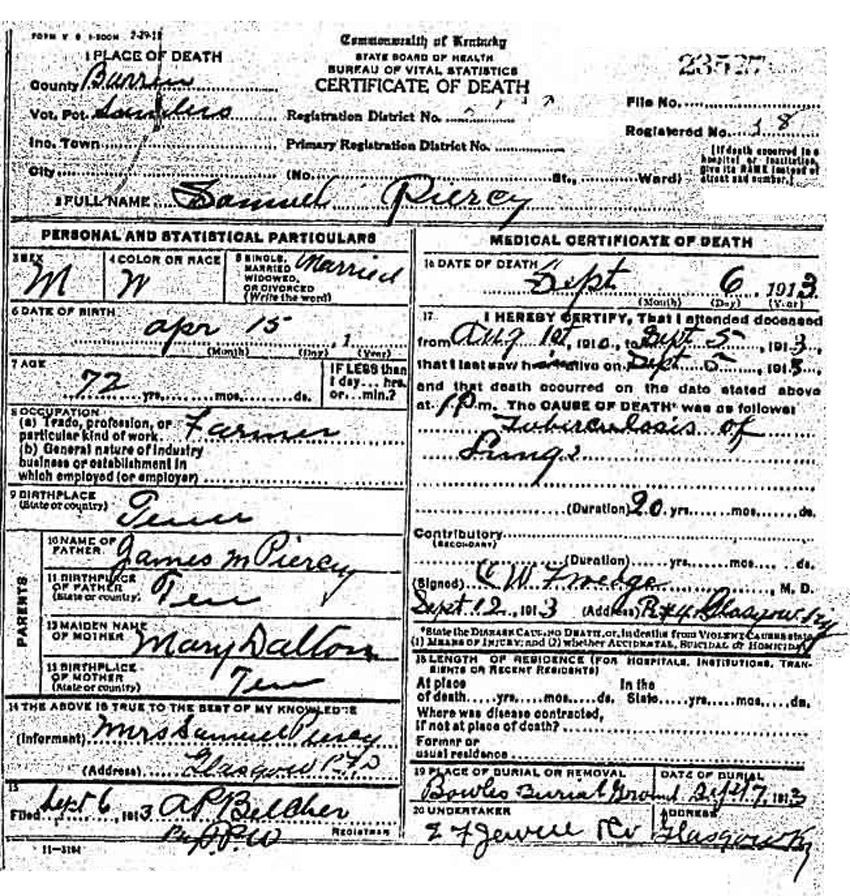 FORM V. S. 1-500M 2-29-12
Commonwealth of Kentucky
STATE BOARD OF HEALTH
BUREAU OF VITAL STATISTICS
CERTIFICATE OF DEATH
23527
1 PLACE OF DEATH
County Barren
Vot. Pct. Sanders
Inc. Town
City
Registration District No.
Primary Registration District No.
(No. St., Ward)
File No.
Registered No. 18
[If death occurred in a
hospital or institution,
give its NAME instead of
street and number.]
2 FULL NAME Samuel Piercy
PERSONAL AND STATISTICAL PARTICULARS
3 SEX
M
4 COLOR OR RACE
W
5 SINGLE,
MARRIED
WIDOWED,
OR DIVORCED
(Write the word)
Married
6 DATE OF BIRTH
apr 15, 1
(Month) (Day) (Year)
7 AGE
72 yrs. mos. ds.
IF LESS than
1 day... hrs.
or... min.?
8 OCCUPATION
(a) Trade, profession, or
particular kind of work Farmer
(b) General nature of industry
business or establishment in
which employed (or employer)
9 BIRTHPLACE
(State or country)
Tenn
PARENTS
10 NAME OF
FATHER James M Piercy
11 BIRTHPLACE
OF FATHER
(State or country) Ten
12 MAIDEN NAME
OF MOTHER Mary Dalton
13 BIRTHPLACE
OF MOTHER
(State or country) Ten
14 THE ABOVE IS TRUE TO THE BEST OF MY KNOWLEDGE
(Informant) Mrs Samuel Piercy
(Address) Glasgow RFD
15
Filed Sept 6, 1913 A P Belcher
REGISTRAR
11-3184
MEDICAL CERTIFICATE OF DEATH
16 DATE OF DEATH
Sept 6, 1913
(Month) (Day) (Year)
17 I HEREBY CERTIFY, That I attended deceased
from Aug 1st, 1910, to Sept 5, 1913,
that I last saw him alive on Sept 5, 1913,
and that death occurred on the date stated above
at 1 P.m. The CAUSE OF DEATH* was as follows:
Tuberculosis of
Lungs
(Duration) 20 yrs. mos. ds.
Contributory
(SECONDARY)
(Duration) yrs. mos. ds.
(Signed) C W Froedge, M. D.
Sept 12, 1913 (Address) R#4 Glasgow Ky
*State the DISEASE CAUSING DEATH, or, in deaths from VIOLENT CAUSES state
(1) MEANS OF INJURY; and (2) whether ACCIDENTAL, SUICIDAL or HOMICIDAL
18 LENGTH OF RESIDENCE (FOR HOSPITALS, INSTITUTIONS, TRAN-
SIENTS OR RECENT RESIDENTS)
At place In the
of death yrs. mos. ds. State yrs. mos. ds.
Where was disease contracted,
if not at place of death?
Former or
usual residence
19 PLACE OF BURIAL OR REMOVAL
Bowles Burial Ground
DATE OF BURIAL
Sept 7, 1913
20 UNDERTAKER
E F Jewell
ADDRESS
Glasgow Ky